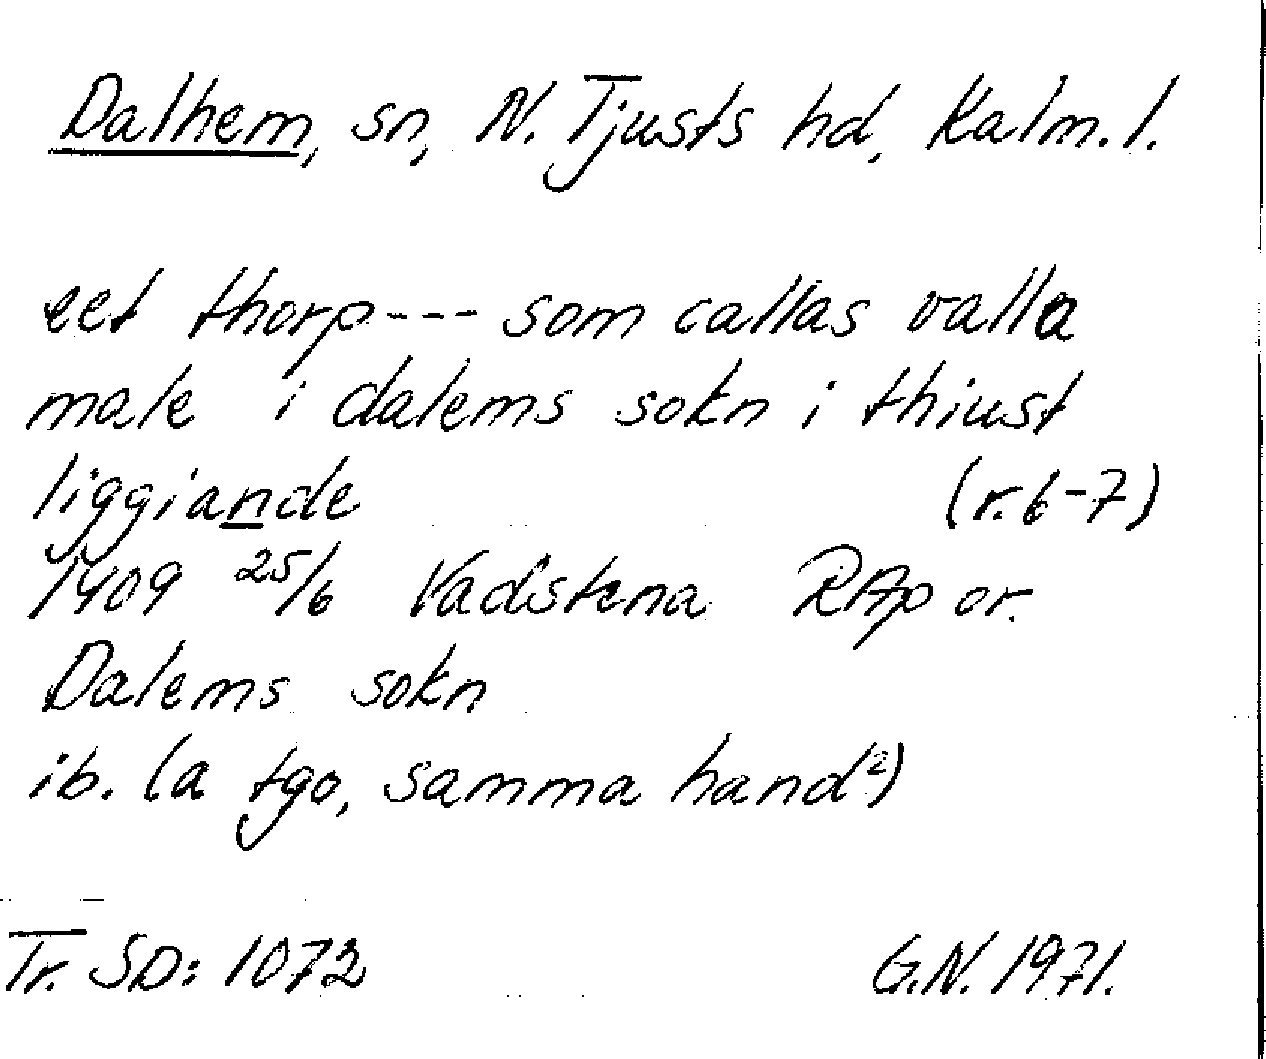 Dalhem, sn, N. Tjusts hd, Kalm. l.
eet thorp --- som callas valla
male i dalems sokn i thiust
liggiande (r. 6-7)
1409 25/6 Vadstena RAp or.
Dalems sokn
ib. (a tgo, samma hand²)
Tr. SD: 1072 G.N. 1971.